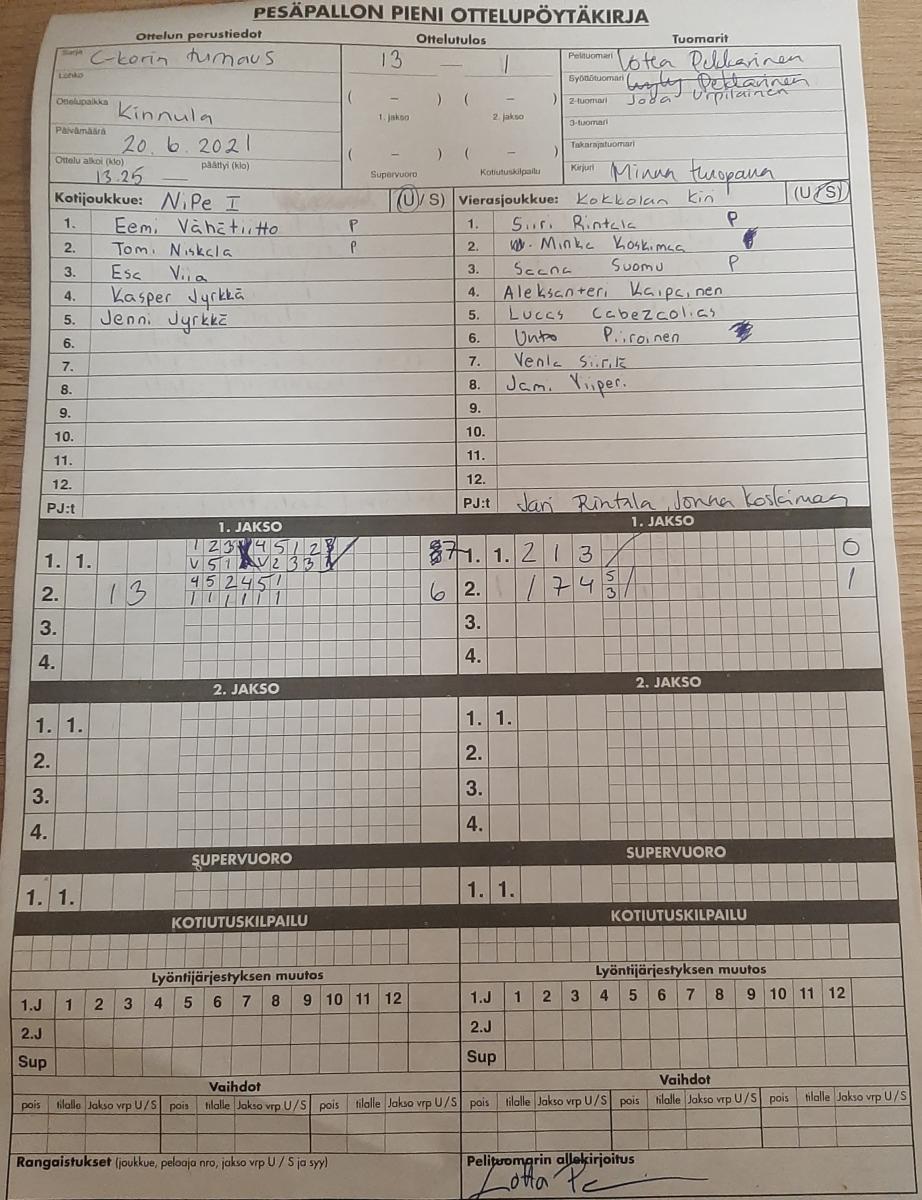 PESÄPALLON PIENI OTTELUPÖYTÄKIRJA
Ottelun perustiedot
Ottelutulos
Tuomarit
Sarja C-korin turnaus
Lohko
Ottelupaikka Kinnula
Päivämäärä 20.6.2021
Ottelu alkoi (klo) päättyi (klo)
13.25 —
13 — 1
( – ) ( – )
1. jakso 2. jakso
( – ) ( – )
Supervuoro Kotiutuskilpailu
Pelituomari Lotta Pekkarinen
Syöttötuomari Pekkarinen
2-tuomari Urpilainen
3-tuomari
Takarajatuomari
Kirjuri Minna
Kotijoukkue: NiPe I (U/S)
1. Eemi Vähätiitto P
2. Tomi Niskala P
3. Esa Viia
4. Kasper Jyrkkä
5. Jenni Jyrkkä
6.
7.
8.
9.
10.
11.
12.
PJ:t
Vierasjoukkue: Kokkolan Kiri (U/S)
1. Siiri Rintala P
2. Minka Koskimaa
3. Saana Suomu P
4. Aleksanteri Kaipainen
5. Lucas Cabezaolias
6. Unto Piiroinen
7. Venla Siirilä
8. Jami Viiperi
9.
10.
11.
12.
PJ:t Jari Rintala, Jonna Koskimaa
1. JAKSO
1. 1.
1 2 3 4 5 1 2
V 5 1 V 2 3 3
7
2. 1 3
4 5 2 4 5 1
1 1 1 1 1 1
6
3.
4.
1. JAKSO
1. 1. 2 1 3 0
2. 1 7 4 5 1
3
3.
4.
2. JAKSO
1. 1.
2.
3.
4.
2. JAKSO
1. 1.
2.
3.
4.
SUPERVUORO
1. 1.
SUPERVUORO
1. 1.
KOTIUTUSKILPAILU
KOTIUTUSKILPAILU
Lyöntijärjestyksen muutos
1.J 1 2 3 4 5 6 7 8 9 10 11 12
2.J
Sup
Lyöntijärjestyksen muutos
1.J 1 2 3 4 5 6 7 8 9 10 11 12
2.J
Sup
Vaihdot
pois tilalle Jakso vrp U/S pois tilalle Jakso vrp U/S pois tilalle Jakso vrp U/S
Vaihdot
pois tilalle Jakso vrp U/S pois tilalle Jakso vrp U/S pois tilalle Jakso vrp U/S
Rangaistukset (joukkue, pelaaja nro, jakso vrp U / S ja syy)
Pelituomarin allekirjoitus
Lotta